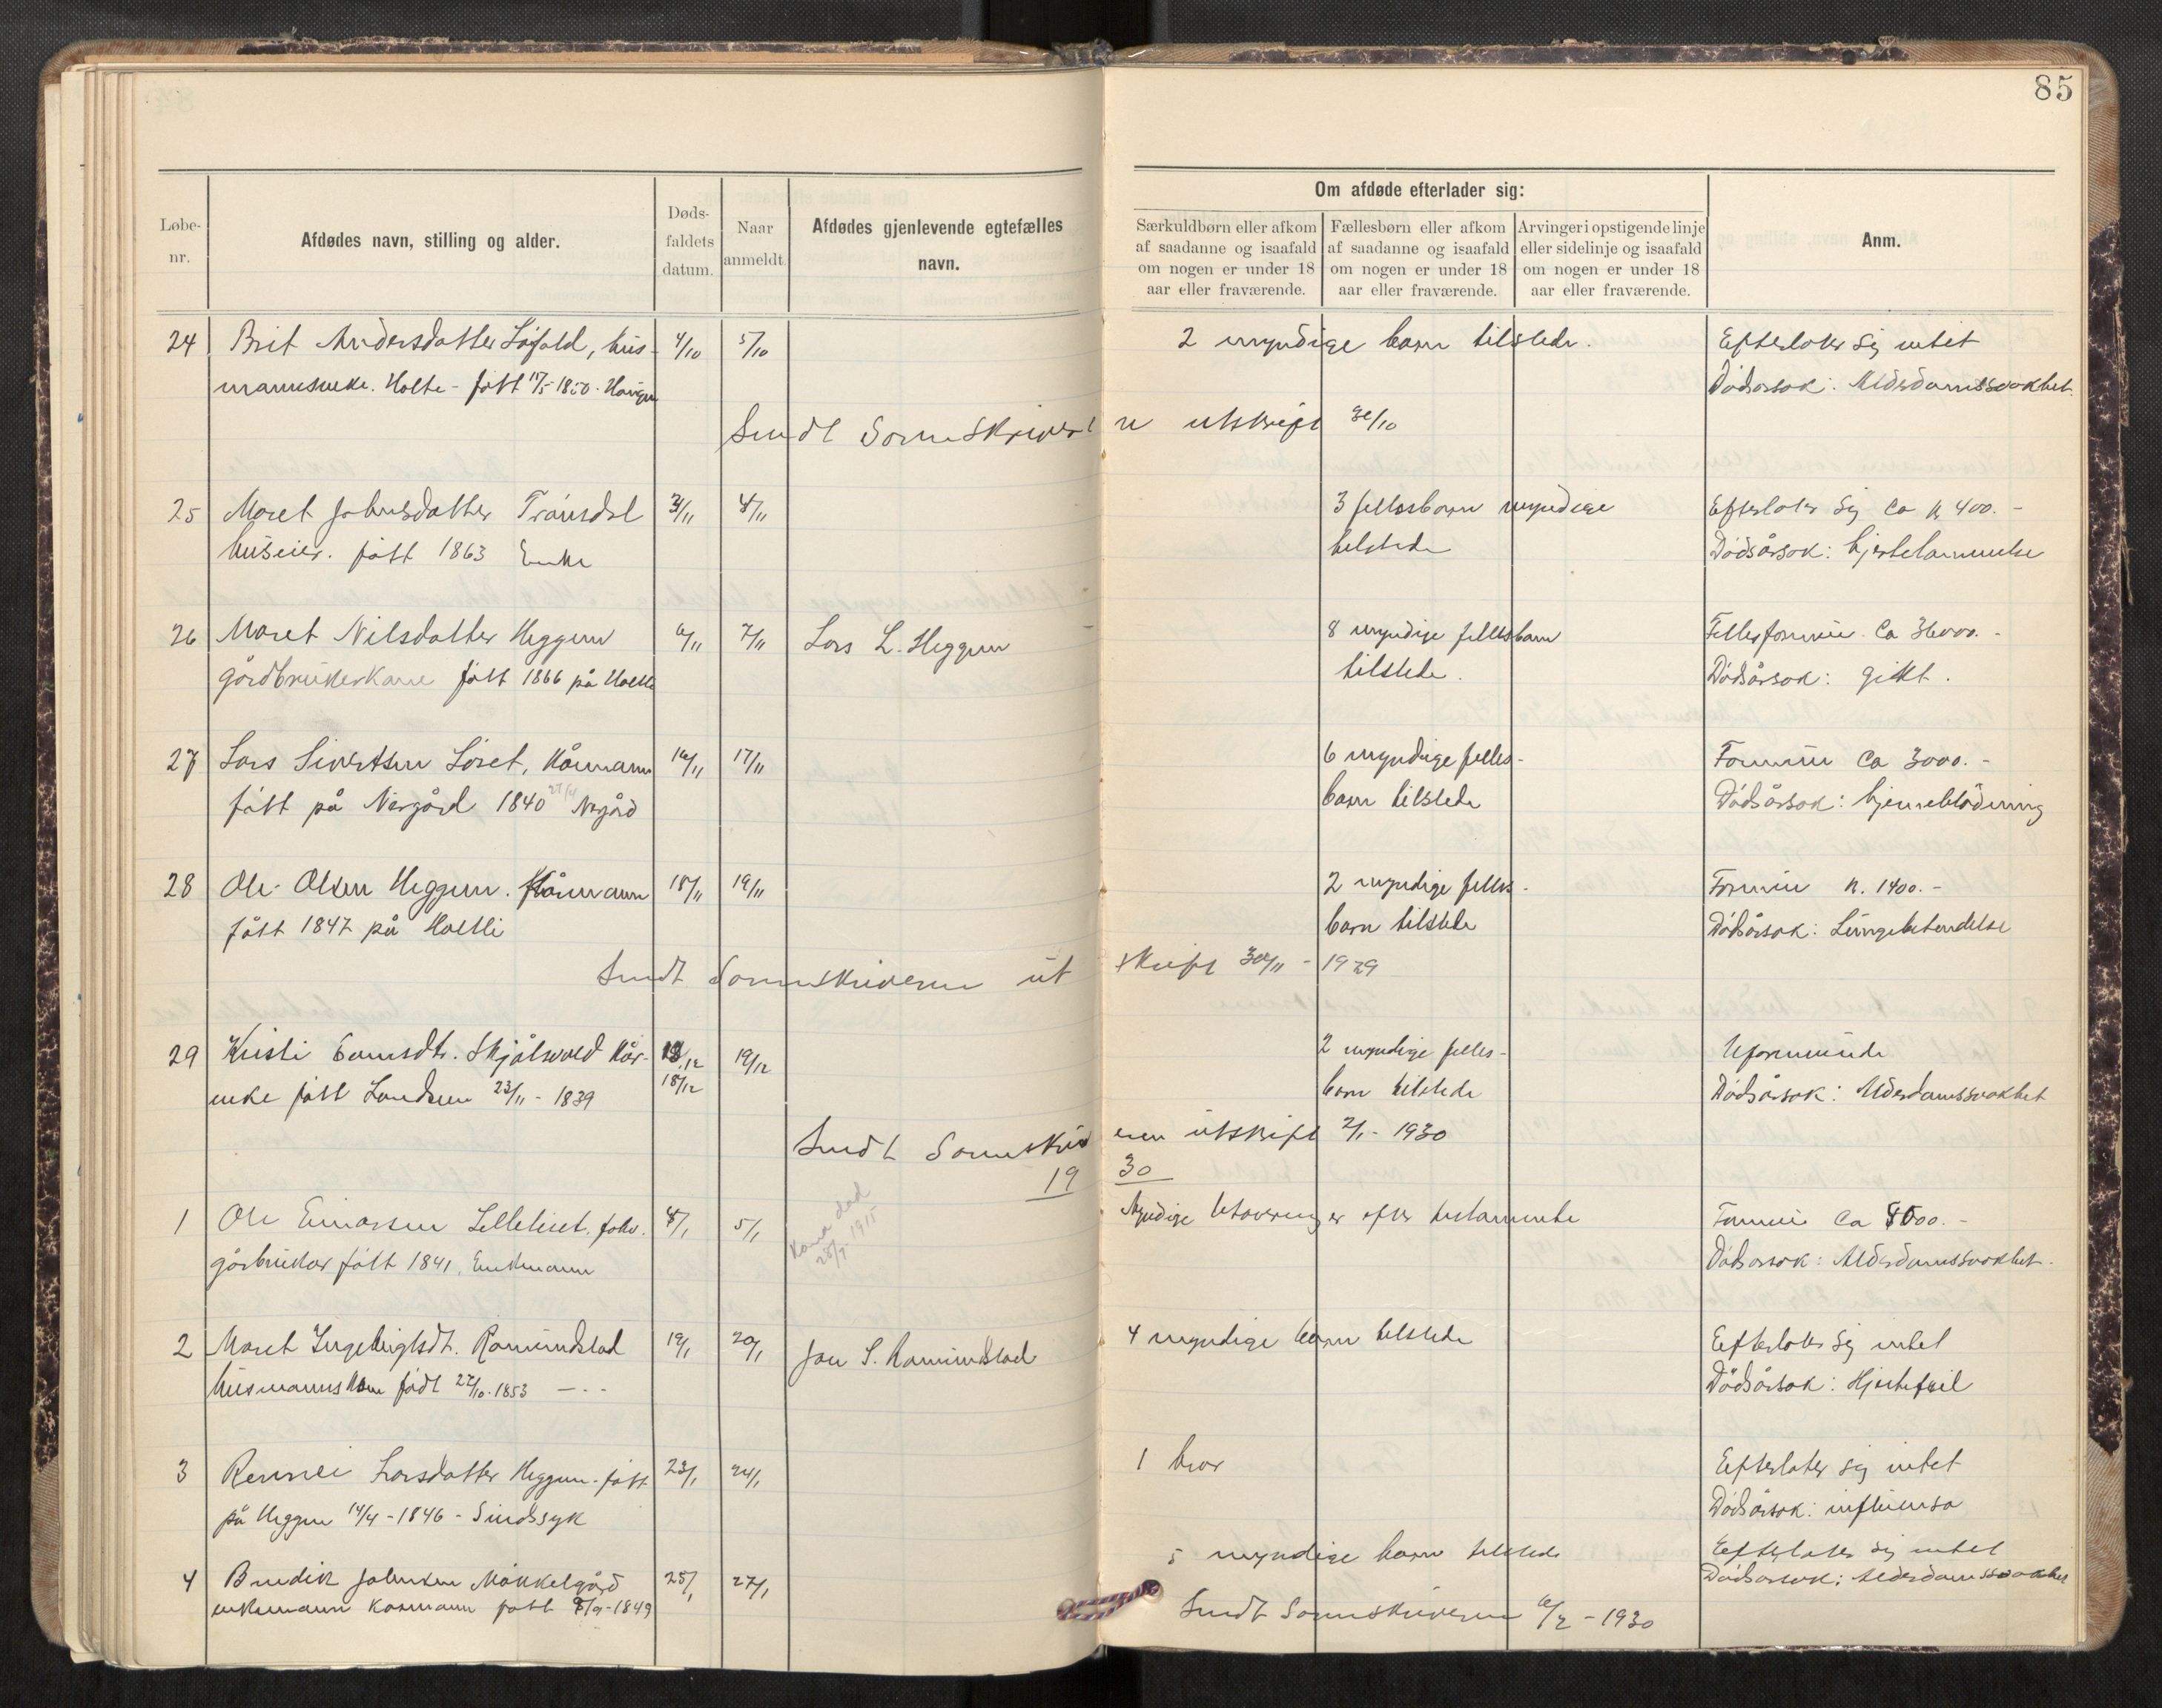 85
Om afdøde efterlader sig:
Løbe-nr.
Afdødes navn, stilling og alder.
Døds-faldets datum.
Naar anmeldt.
Afdødes gjenlevende egtefælles navn.
Særkuldbørn eller afkom af saadanne og isaafald om nogen er under 18 aar eller fraværende.
Fællesbørn eller afkom af saadanne og isaafald om nogen er under 18 aar eller fraværende.
Arvinger i opstigende linje eller sidelinje og isaafald om nogen er under 18 aar eller fraværende.
Anm.
24 Brit Andersdatter Løfald, hus- 4/10 5/10 2 myndige barn tilstede. Efterlater sig intet
mannsenke. Holte - født 1850. Dødsårsak: Alderdomssvakhet.
Sendt Sorenskriveren utskrift 30/10
25 Maret Johnsdatter Trønsdal 4/11 3 fellesbarn myndige Efterlater sig ca kr 400.-
huseier. født 1863 Enke tilstede Dødsårsak: hjertelammelse
26 Maret Nilsdatter Heggem 6/11 7/11 Lars L. Heggem 8 myndige fellesbarn Fellesformue ca 36000.-
gårdbrukerkone født 1866 på Holtli tilstede. Dødsårsak: gikt.
27 Lars Sivertsen Løset, kårmann 16/11 17/11 6 myndige felles- Formue ca 3000.-
født på Nergård 1840 Nergård barn tilstede Dødsårsak: hjerneblødning
28 Ole Olsen Heggem. kårmann 18/11 19/11 2 myndige felles- Formue kr. 1400.-
født 1847 på Holtli barn tilstede Dødsårsak: Lungebetendelse
Sendt Sorenskriveren utskrift 30/11 - 1929
29 Kristi Skjølsvold kår- 18/12 19/12 2 myndige felles- Uformuende
enke født Landsem 23/11 - 1839 18/12 barn tilstede Dødsårsak: Alderdomssvakhet
Sendt Sorenskriveren utskrift 2/1 - 1930
1930
1 Ole Einarsen Lillelien, forh. 5/1 Kona død Myndige efter testamente Formue ca
gårbruker født 1841, Enkemann 1915 Dødsårsak: Alderdomssvakhet.
2 Maret Ingebrigtsdt. Ramundstad 19/1 20/1 Jon S. Ramundstad 4 myndige barn tilstede Efterlater sig intet
husmannskone født 22/10. 1853 Dødsårsak: Hjertefeil
3 Rennei Larsdatter Heggem. født 23/1 24/1 1 bror Efterlater sig intet
på Heggem 14/4 - 1846 - Sindssyk Dødsårsak: influensa
4 Johnsen Mokkelgård 25/1 27/1 5 myndige barn tilstede Efterlater sig intet
enkemann kormann født 1849 Dødsårsak: Alderdomssvakhet
Sendt Sorenskriveren 6/2 - 1930